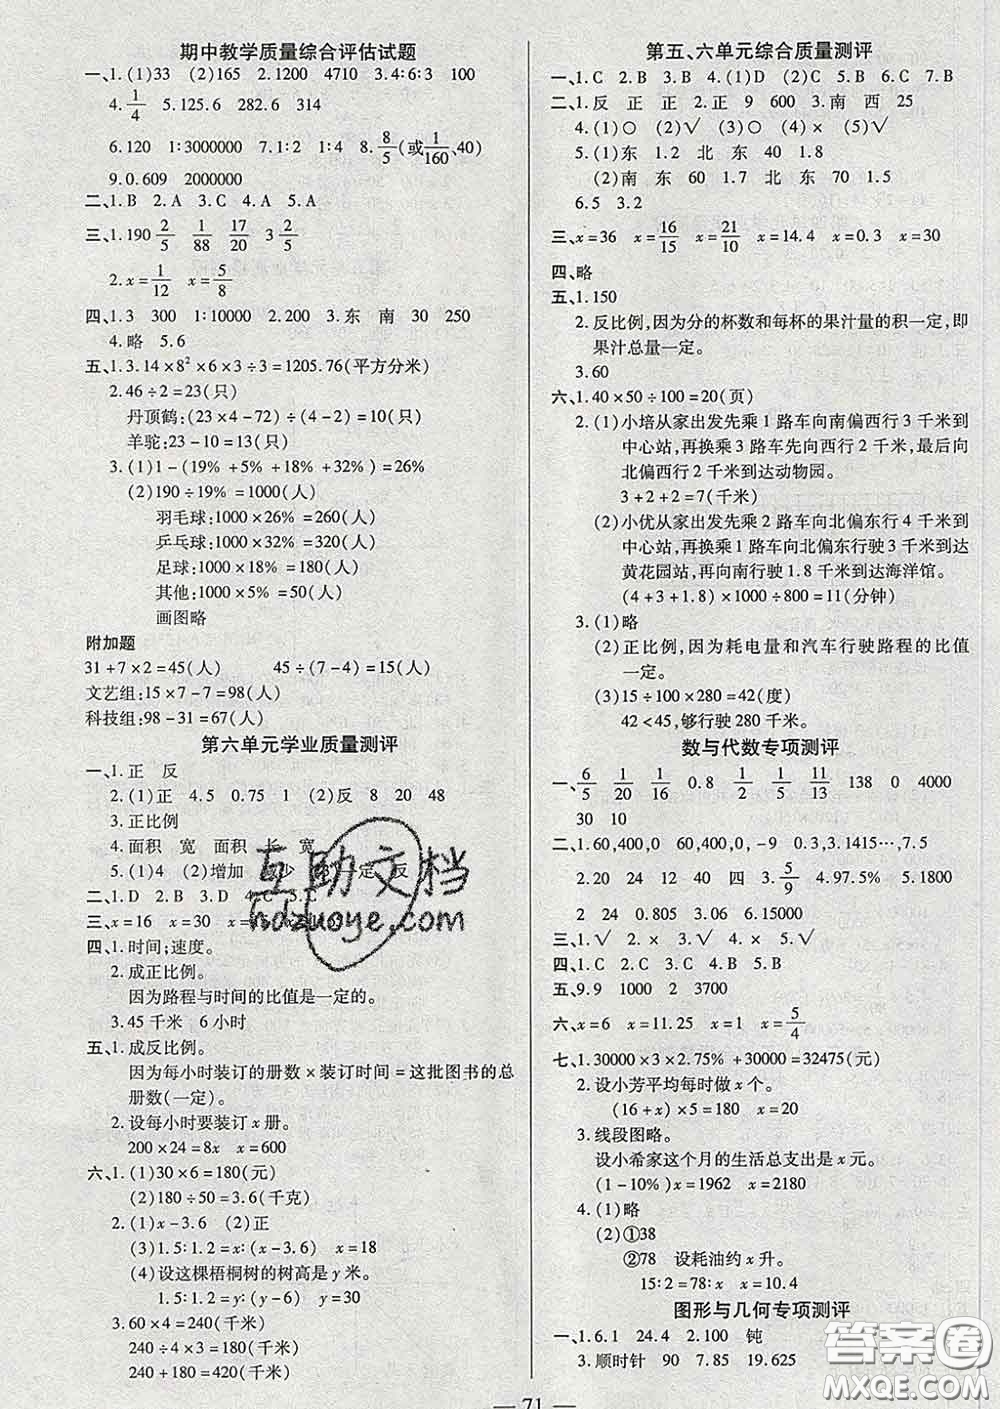 期中教学质量综合评估试题
一、1.(1)33 (2)165 2.1200 4710 3.4∶6∶3 100
4.1/4 5.125.6 282.6 314
6.120 1∶3000000 7.1∶2 1∶4 8.8/5(或1/160、40)
9.0.609 2000000
二、1.B 2.A 3.C 4.A 5.A
三、1.190 2/5 1/88 17/20 3 2/5
2.x=1/12 x=5/8
四、1.3 300 1∶10000 2.200 3.东 南 30 250
4.略 5.6
五、1.3.14×8²×6×3÷3=1205.76(平方分米)
2.46÷2=23(只)
丹顶鹤:(23×4-72)÷(4-2)=10(只)
羊驼:23-10=13(只)
3.(1)1-(19%+5%+18%+32%)=26%
(2)190÷19%=1000(人)
羽毛球:1000×26%=260(人)
乒乓球:1000×32%=320(人)
足球:1000×18%=180(人)
其他:1000×5%=50(人)
画图略
附加题
31+7×2=45(人) 45÷(7-4)=15(人)
文艺组:15×7-7=98(人)
科技组:98-31=67(人)
第六单元学业质量测评
一、1.正 反
2.(1)正 4.5 0.75 1 (2)反 8 20 48
3.正比例
4.面积 宽 面积 长 宽
5.(1)4 (2)增加 减少 定 反
二、1.D 2.B 3.A 4.D 5.B
三、x=16 x=30
四、1.时间;速度。
2.成正比例。
因为路程与时间的比值是一定的。
3.45千米 6小时
五、1.成反比例。
因为每小时装订的册数×装订时间=这批图书的总
册数(一定)。
2.设每小时要装订x册。
200×24=8x x=600
六、1.(1)30×6=180(元)
(2)180÷50=3.6(千克)
2.(1)x-3.6 (2)正
(3)1.5∶1.2=x∶(x-3.6) x=18
(4)设这棵梧桐树的树高是y米。
1.5∶1.2=y∶(y-6) y=30
3.60×4=240(千米)
240÷4×3=180(千米)
240+180=420(千米)
第五、六单元综合质量测评
一、1.C 2.B 3.B 4.(1)D (2)C 5.B 6.C 7.B
二、1.反 正 正 2.正 9 600 3.南 西 25
4.(1)○ (2)√ (3)○ (4)× (5)√
5.(1)东 1.2 北 东 40 1.8
(2)南 东 60 1.7 北 东 70 1.5
6.5 3.2
三、x=36 x=16/15 x=21/10 x=14.4 x=0.3 x=30
四、略
五、1.150
2.反比例,因为分的杯数和每杯的果汁量的积一定,即
果汁总量一定。
3.60
六、1.40×50÷100=20(页)
2.(1)小培从家出发先乘1路车向南偏西行3千米到
中心站,再换乘3路车先向西行2千米,最后向
北偏西行2千米到达动物园。
3+2+2=7(千米)
(2)小优从家出发先乘2路车向北偏东行4千米到
中心站,再换乘1路车向北偏东行驶3千米到达
黄花园站,再向南行驶1.8千米到达海洋馆。
(4+3+1.8)×1000÷800=11(分钟)
3.(1)略
(2)正比例,因为耗电量和汽车行驶路程的比值
一定。
(3)15÷100×280=42(度)
42<45,够行驶280千米。
数与代数专项测评
一、6/5 1/20 1/16 0.8 1/2 1/5 11/13 138 0 4000
30 10
二、1.60,400,0 60,400,0,-9 0.3,3.1415…,7.5
2.20 24 12 40 四 3.5/9 4.97.5% 5.1800
2 24 0.805 3.06 6.15000
三、1.√ 2.× 3.√ 4.× 5.√
四、1.C 2.C 3.C 4.B 5.B
五、9.9 1000 2 3700
六、x=6 x=11.25 x=1 x=5/4
七、1.30000×3×2.75%+30000=32475(元)
2.设小芳平均每时做x个。
(16+x)×5=180 x=20
3.线段图略。
设小希家这个月的生活总支出是x元。
(1-10%)x=1962 x=2180
4.(1)略
(2)①38
②78 设耗油约x升。
15∶2=78∶x x=10.4
图形与几何专项测评
一、1.6.1 24.4 2.100 钝
3.顺时针 90 7.85 19.625
71
互助文档
hdzuoye.com
答案圈
MXQE.COM